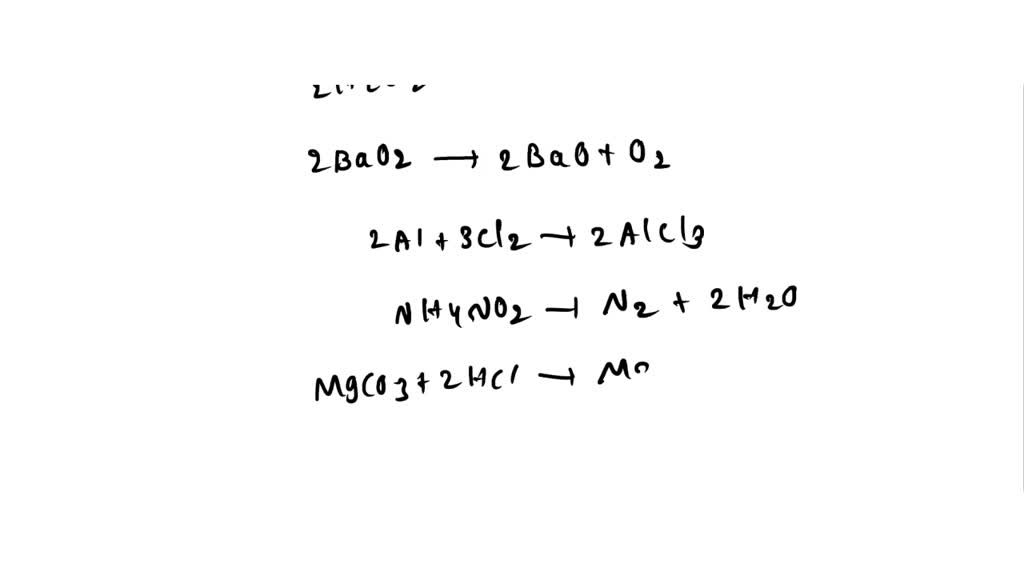 2BaO2 → 2BaO + O2
2Al + 3Cl2 → 2AlCl3
NH4NO2 → N2 + 2H2O
MgCO3 + 2HCl →